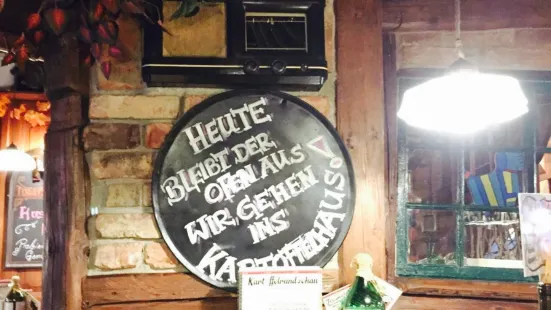 HEUTE
BLEIBT DER
OFEN AUS
WIR GEHEN
INS
KARTOFFELHAUS!
Kartoffelrundschau